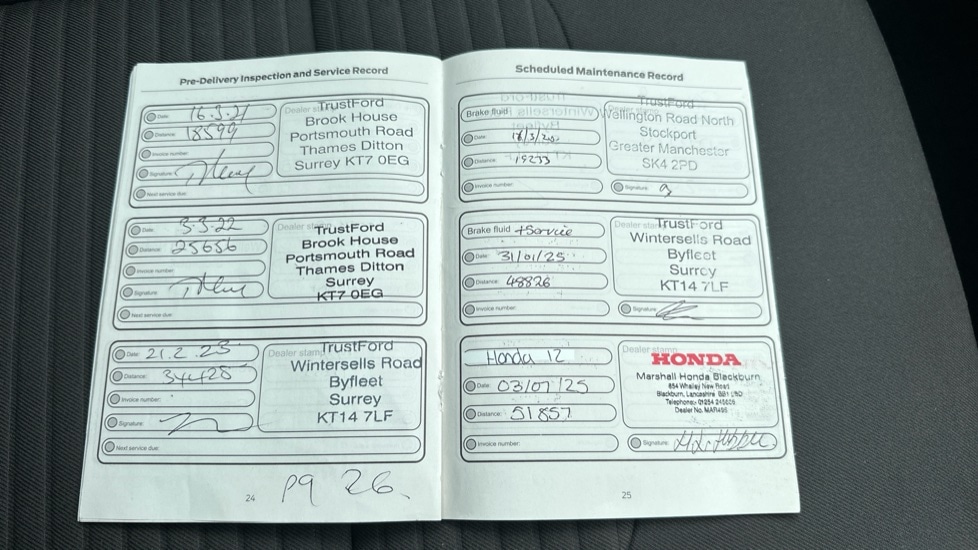 Pre-Delivery Inspection and Service Record
Date: 16.3.21
Distance: 18599
Invoice number:
Signature:
Next service due:
Dealer stamp
TrustFord
Brook House
Portsmouth Road
Thames Ditton
Surrey KT7 0EG
Date: 3.3.22
Distance: 25656
Invoice number:
Signature:
Next service due:
Dealer stamp
TrustFord
Brook House
Portsmouth Road
Thames Ditton
Surrey
KT7 0EG
Date: 21.2.23
Distance: 34428
Invoice number:
Signature:
Next service due:
Dealer stamp
TrustFord
Wintersells Road
Byfleet
Surrey
KT14 7LF
24
pg 26.
Scheduled Maintenance Record
Brake fluid
Date:
Distance: 19233
Invoice number:
Dealer stamp
TrustFord
Wellington Road North
Stockport
Greater Manchester
SK4 2PD
Signature:
Brake fluid + Service
Date: 31/01/25
Distance: 48826
Invoice number:
Dealer stamp
TrustFord
Wintersells Road
Byfleet
Surrey
KT14 7LF
Signature:
Honda 12
Date: 03/07/25
Distance: 51857
Invoice number:
Dealer stamp
HONDA
Marshall Honda Blackburn
854 Whalley New Road
Blackburn, Lancashire BB1 9BD
Telephone:
Dealer No.
Signature:
25